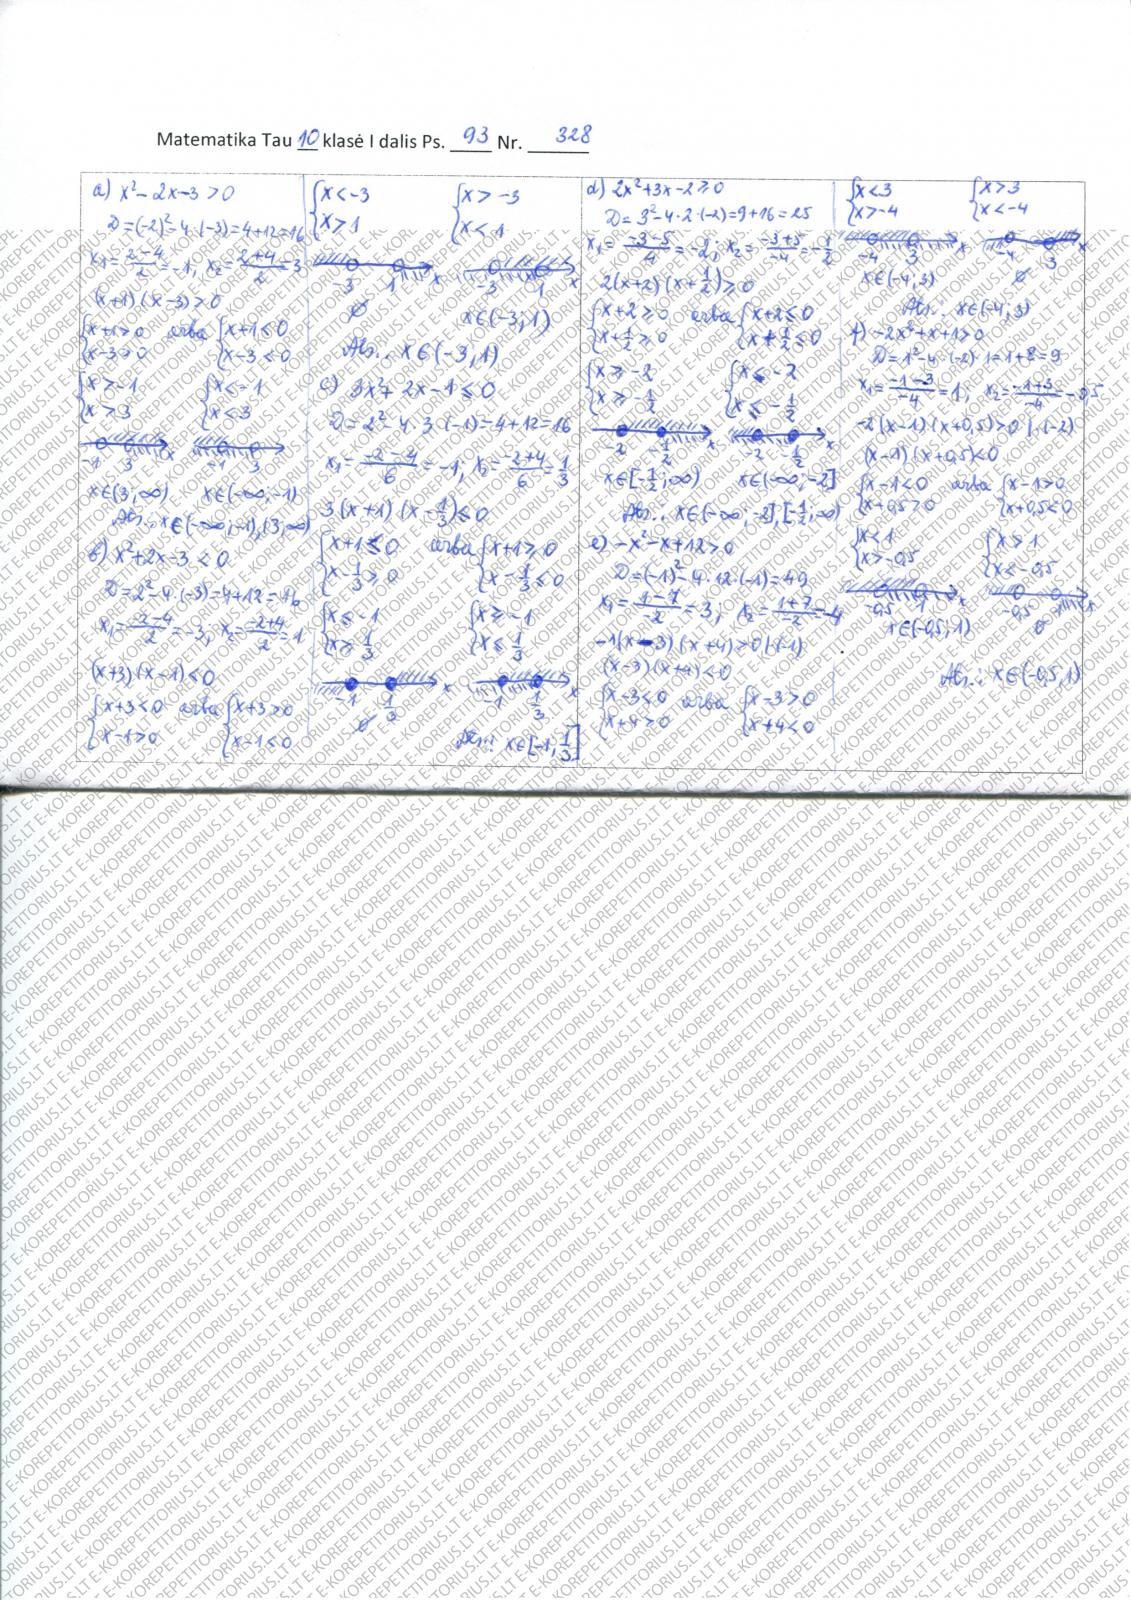 Matematika Tau 10 klasė I dalis Ps. 93 Nr. 328
a) x²-2x-3>0
D=(-2)²-4·(-3)=4+12=16
x₁=(2-4)/2=-1, x₂=(2+4)/2=3
(x+1)(x-3)>0
{x+1>0 arba {x+1<0
{x-3>0 {x-3<0
{x>-1 {x<-1
{x>3 {x<3
-1 3 x -1 3
x∈(3;∞) x∈(-∞;-1)
Ats.: x∈(-∞;-1),(3;∞)
b) x²+2x-3<0
D=2²-4·(-3)=4+12=16
x₁=(-2-4)/2=-3; x₂=(-2+4)/2=1
(x+3)(x-1)<0
{x+3<0 arba {x+3>0
{x-1>0 {x-1<0
{x<-3 {x>-3
{x>1 {x<1
-3 1 x -3 1 x
∅ x∈(-3;1)
Ats.: x∈(-3;1)
c) 3x²+2x-1≤0
D=2²-4·3·(-1)=4+12=16
x₁=(-2-4)/6=-1; x₂=(-2+4)/6=1/3
3(x+1)(x-1/3)≤0
{x+1≤0 arba {x+1≥0
{x-1/3≥0 {x-1/3≤0
{x≤-1 {x≥-1
{x≥1/3 {x≤1/3
-1 1/3 x -1 1/3 x
∅
Ats.: x∈[-1;1/3]
d) 2x²+3x-2≥0
D=3²-4·2·(-2)=9+16=25
x₁=(-3-5)/4=-2; x₂=(-3+5)/-4=-1/2
2(x+2)(x+1/2)≥0
{x+2≥0 arba {x+2≤0
{x+1/2≥0 {x+1/2≤0
{x≥-2 {x≤-2
{x≥-1/2 {x≤-1/2
-2 -1/2 x -2 -1/2 x
x∈[-1/2;∞) x∈(-∞;-2]
Ats.: x∈(-∞;-2],[-1/2;∞)
e) -x²-x+12>0
D=(-1)²-4·12·(-1)=49
x₁=(1-7)/-2=3; x₂=(1+7)/-2=-4
-1(x-3)(x+4)>0|·(-1)
(x-3)(x+4)<0
{x-3<0 arba {x-3>0
{x+4>0 {x+4<0
{x<3 {x>3
{x>-4 {x<-4
-4 3 x -4 3 x
x∈(-4;3) ∅
Ats.: x∈(-4;3)
f) -2x²+x+1>0
D=1²-4·(-2)·1=1+8=9
x₁=(-1-3)/-4=1; x₂=(-1+3)/-4=-0,5
-2(x-1)(x+0,5)>0|:(-2)
(x-1)(x+0,5)<0
{x-1<0 arba {x-1>0
{x+0,5>0 {x+0,5<0
{x<1 {x>1
{x>-0,5 {x<-0,5
-0,5 1 x -0,5 1 x
x∈(-0,5;1) ∅
Ats.: x∈(-0,5;1)
E-KOREPETITORIUS.LT